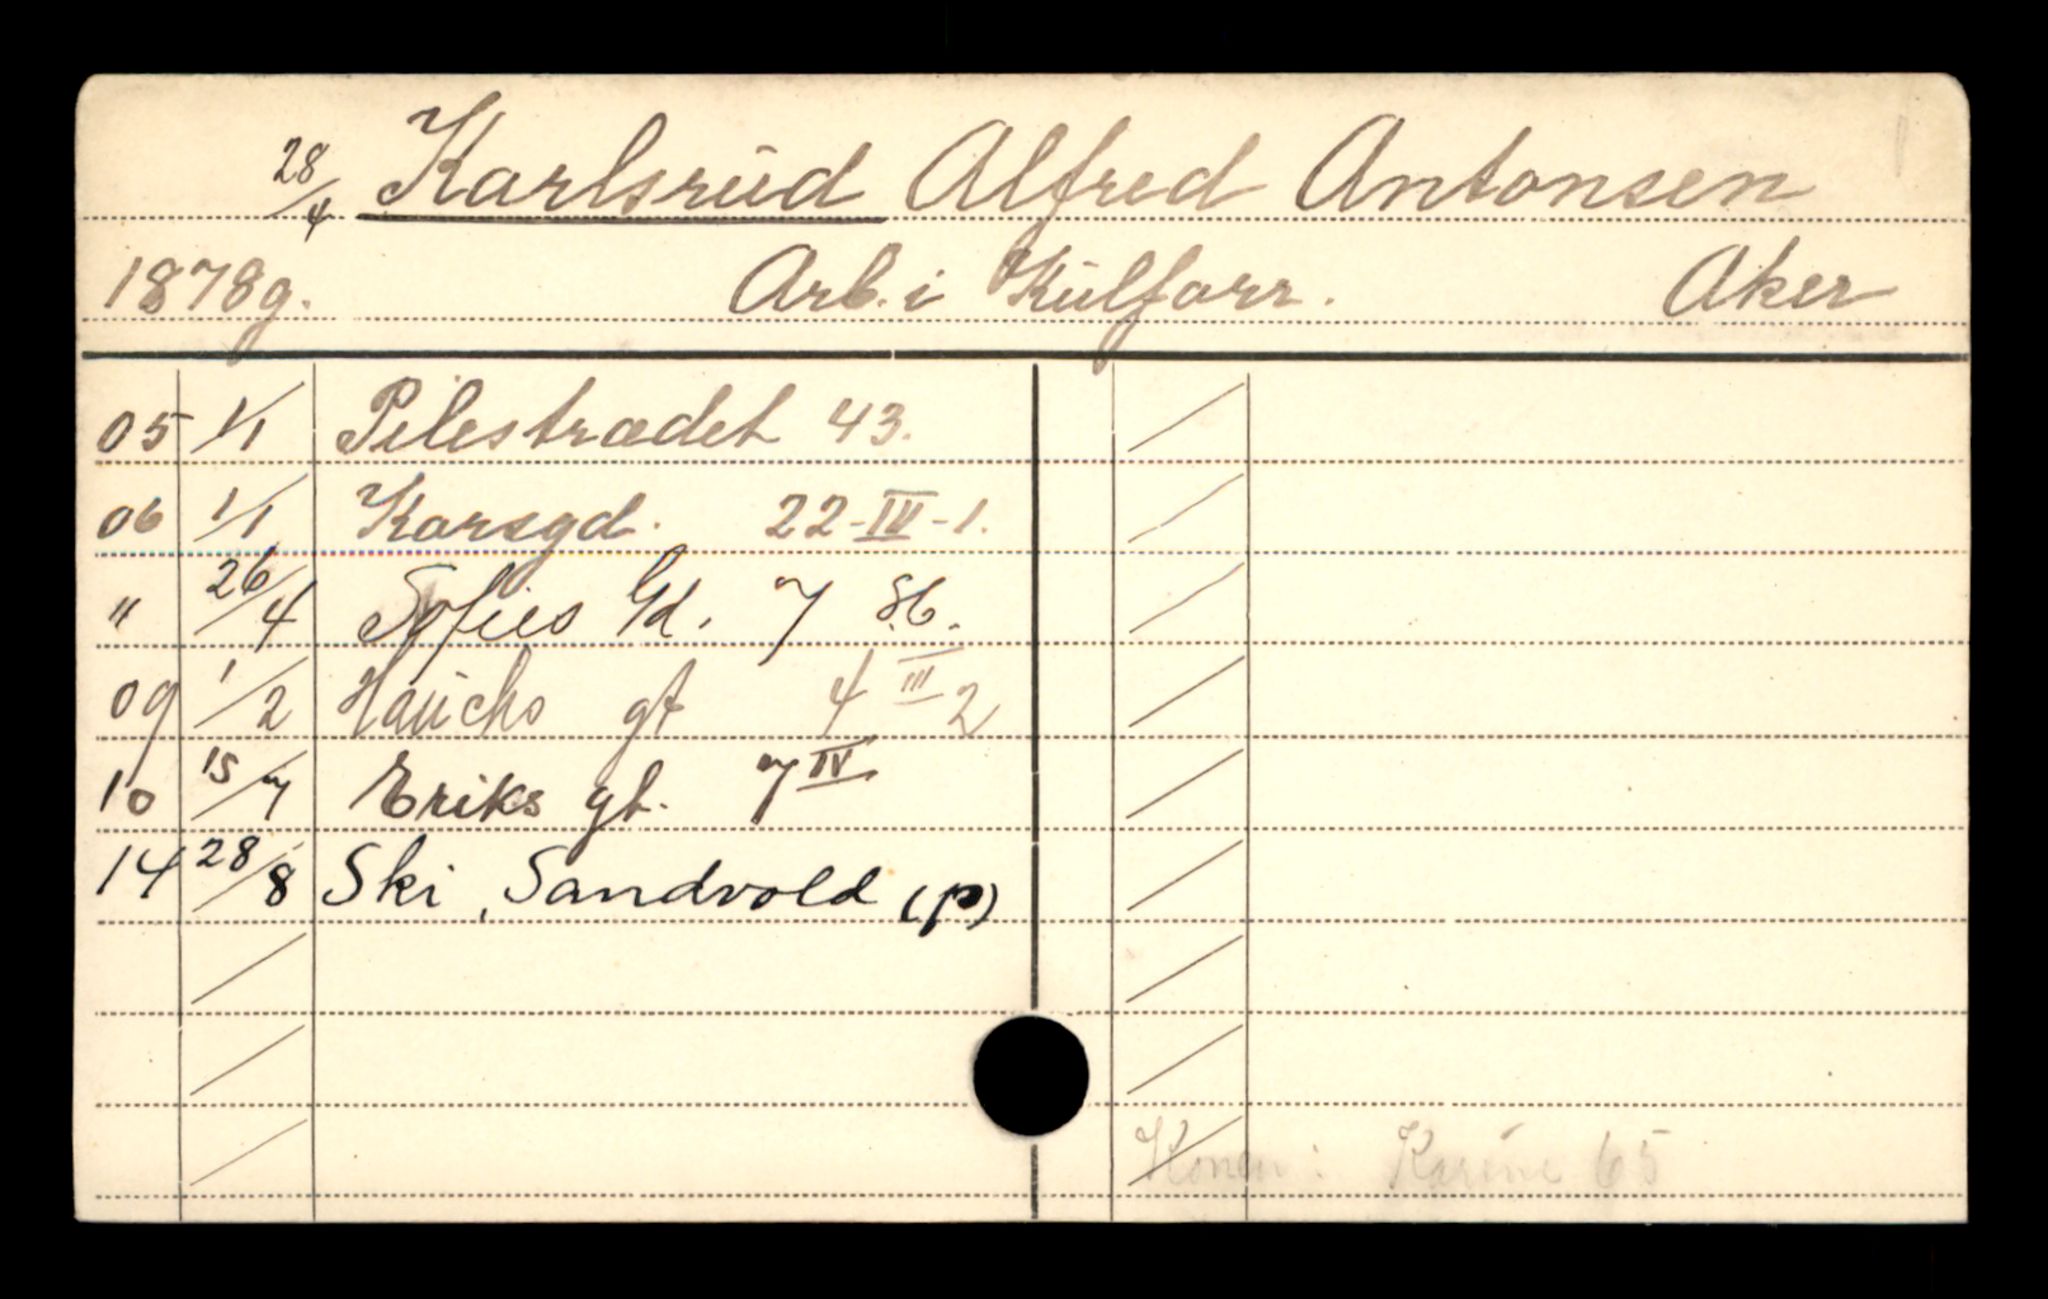 28/4 Karlsrud Alfred Antonsen
1878 g. Arb. i Kulforr. Aker
05 1/1 Pilestrædet 43.
06 1/1 Korsgd. 22-IV-1.
" 26/4 Sofies Gd. 7 S.b.
09 1/2 Hauchs gt 4 III 2
10 15/7 Eriks gt. 7 IV
14 28/8 Ski, Sandvold (p)
Konen: Karine 65